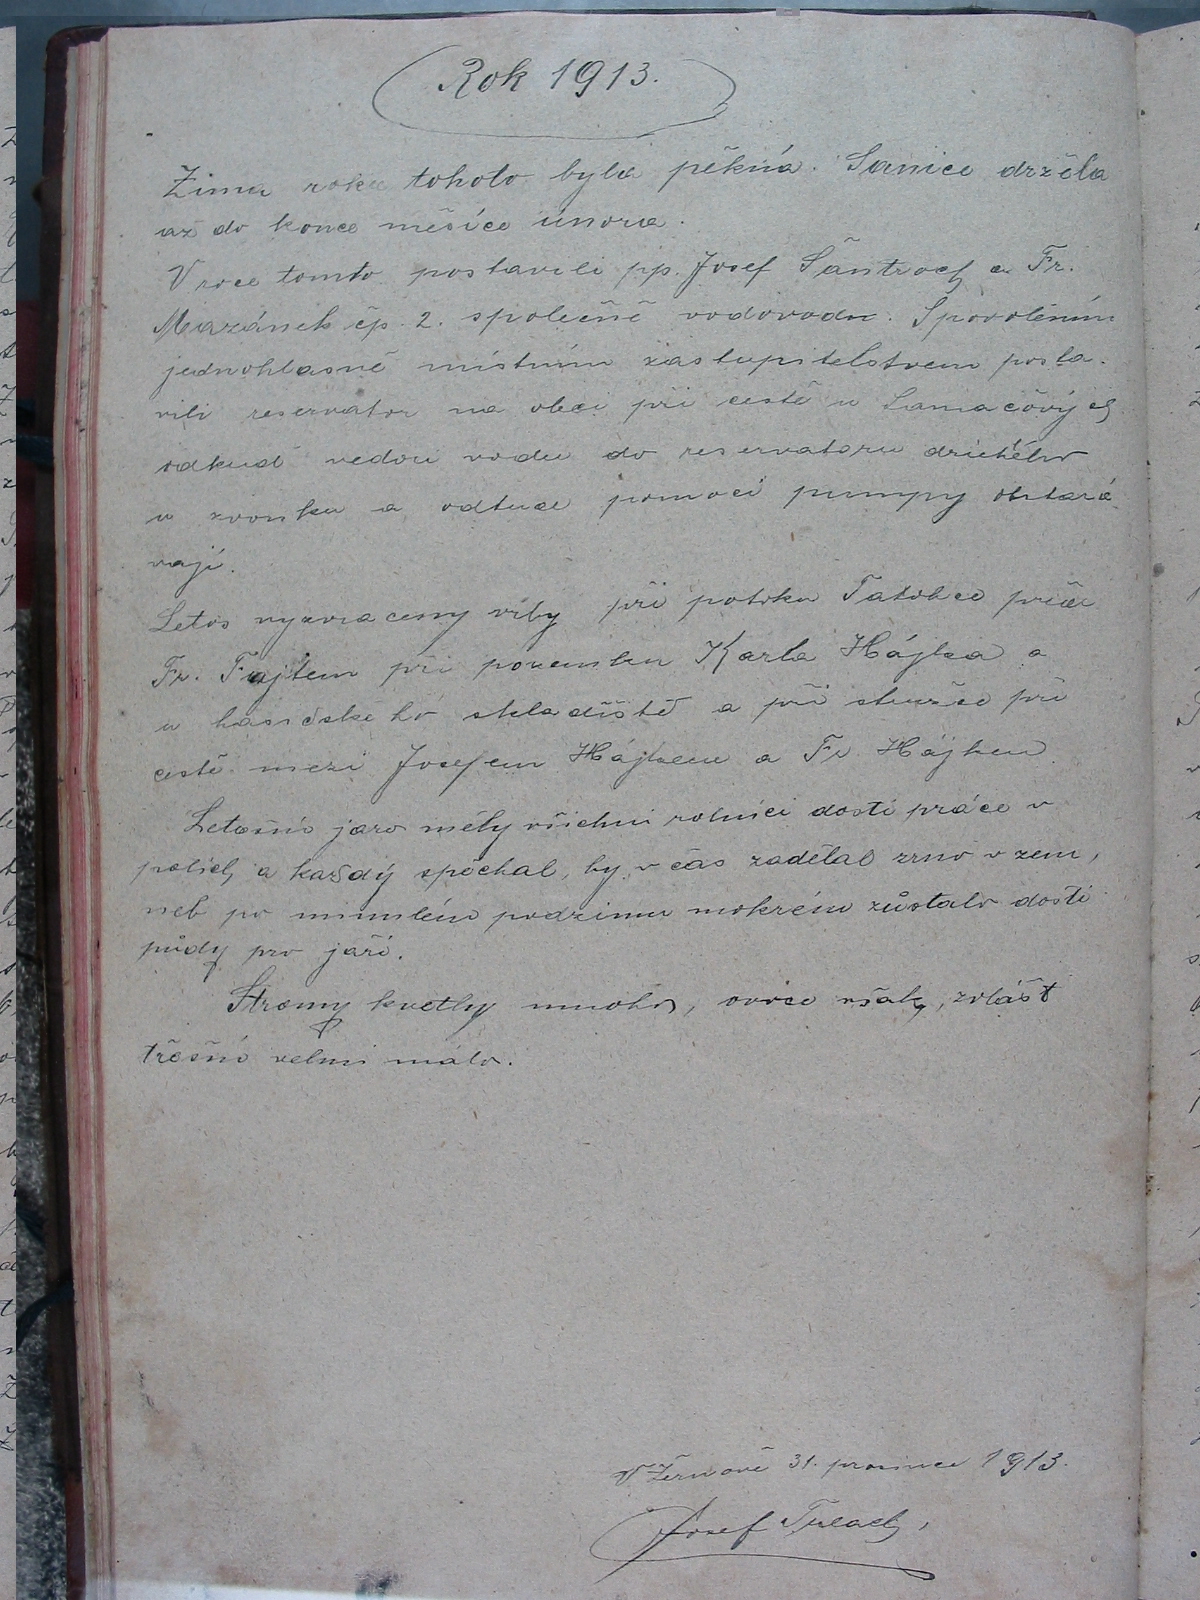 Rok 1913.
Zima roku tohoto byla pěkná. Sanice držela
až do konce měsíce února.
V roce tomto postavili pp. Josef Šantroch a Fr.
Mazánek čp. 2. společně vodovodu. S povolením
jednohlasně místním zastupitelstvem posta-
vili reservator na obci při cestě u
odkud vedou vodu do reservatoru druhého
u zvonku a odtud pomocí pumpy obstará
vají.
Letos vyzvraceny vrby při potoku Tatobce
Fr. Fajtem při pozemku Karla Hájka a
u hasičského skladiště a při stružce při
cestě mezi Josefem Hájkem a Fr. Hájkem.
Letošní jaro měly všichni rolníci dosti práce v
polích, a každý spěchal, by v čas zadělal zrno v zem,
neb po minulém podzimu mokrém zůstalo dosti
půdy pro jaří.
Stromy kvetly mnoho, ovoce však, zvlášt
třešní velmi málo.
V Žernově 31. prosince 1913.
Josef